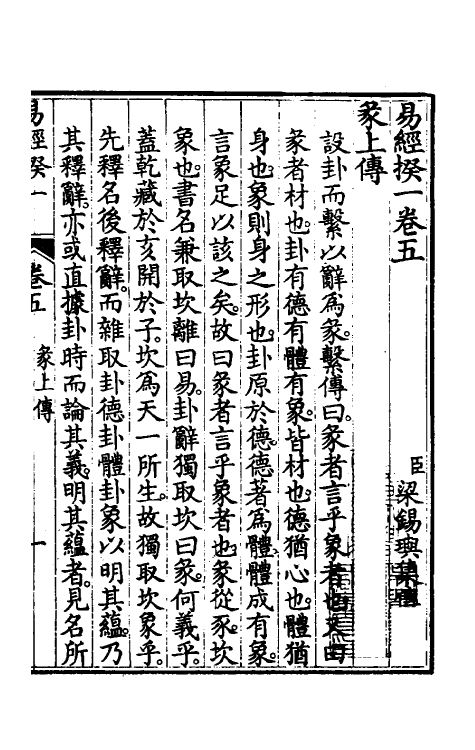 易經揆一卷五
臣梁錫璵集
彖上傳
設卦而繫以辭爲彖。繫傳曰。彖者言乎象者也。又曰
彖者材也。卦有德有體有象。皆材也。德猶心也。體猶
身也。象則身之形也。卦原於德。德著爲體。體成有象。
言象足以該之矣。故曰彖者言乎象者也。彖從豕。坎
象也。書名兼取坎離曰易。卦辭獨取坎曰彖。何義乎。
蓋乾藏於亥開於子。坎爲天一所生。故獨取坎象乎。
先釋名後釋辭。而雜取卦德卦體卦象以明其蘊。乃
其釋辭。亦或直據卦時而論其義。明其蘊者。見名所
易經揆一
卷五
彖上傳
一